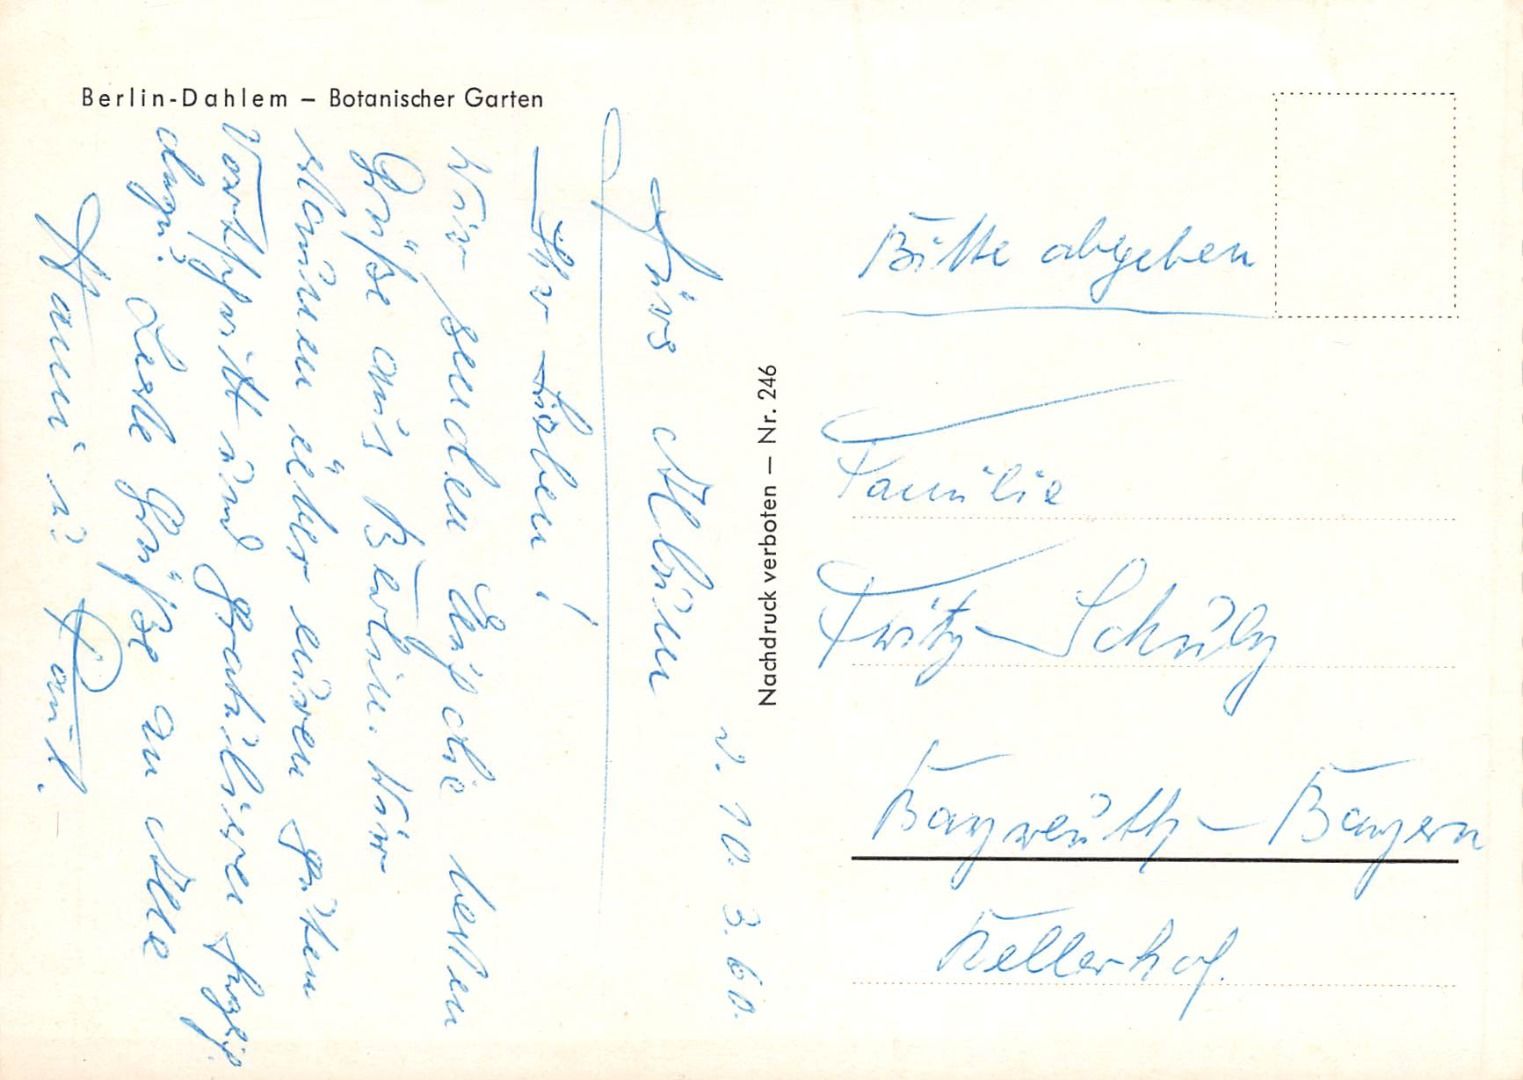 Berlin-Dahlem – Botanischer Garten
v. 10. 3. 60.
Fürs Album
Ihr Lieben!
Wir senden Euch die besten
Grüße aus Berlin. Wir
staunen über euren guten
Vortschritt und gratulieren
dazu. Liebe Grüße an Alle
Hanni u. Paul.
Nachdruck verboten — Nr. 246
Bitte abgeben
Familie
Fritz Schulz
Bayreuth - Bayern
Kellerhof.